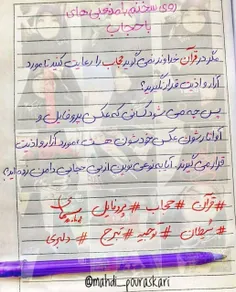 روی سخنم با بعضی های
با حجاب
مگر در قرآن خداوند نمی گوید حجاب را رعایت کنید تا مورد
آزار و اذیت قرار نگیرید؟
پس چه می شود کسانی که عکس پروفایل و
آواتارشون عکس خودشون هست، مورد آزار و اذیت
قرار می گیرند. آیا به نوعی نوین از بی حجابی دامن زده اید؟
#قرآن #حجاب #پروفایل
#شیطان #وجیه #تبرج #دلبری
@mahdi_pouraskari